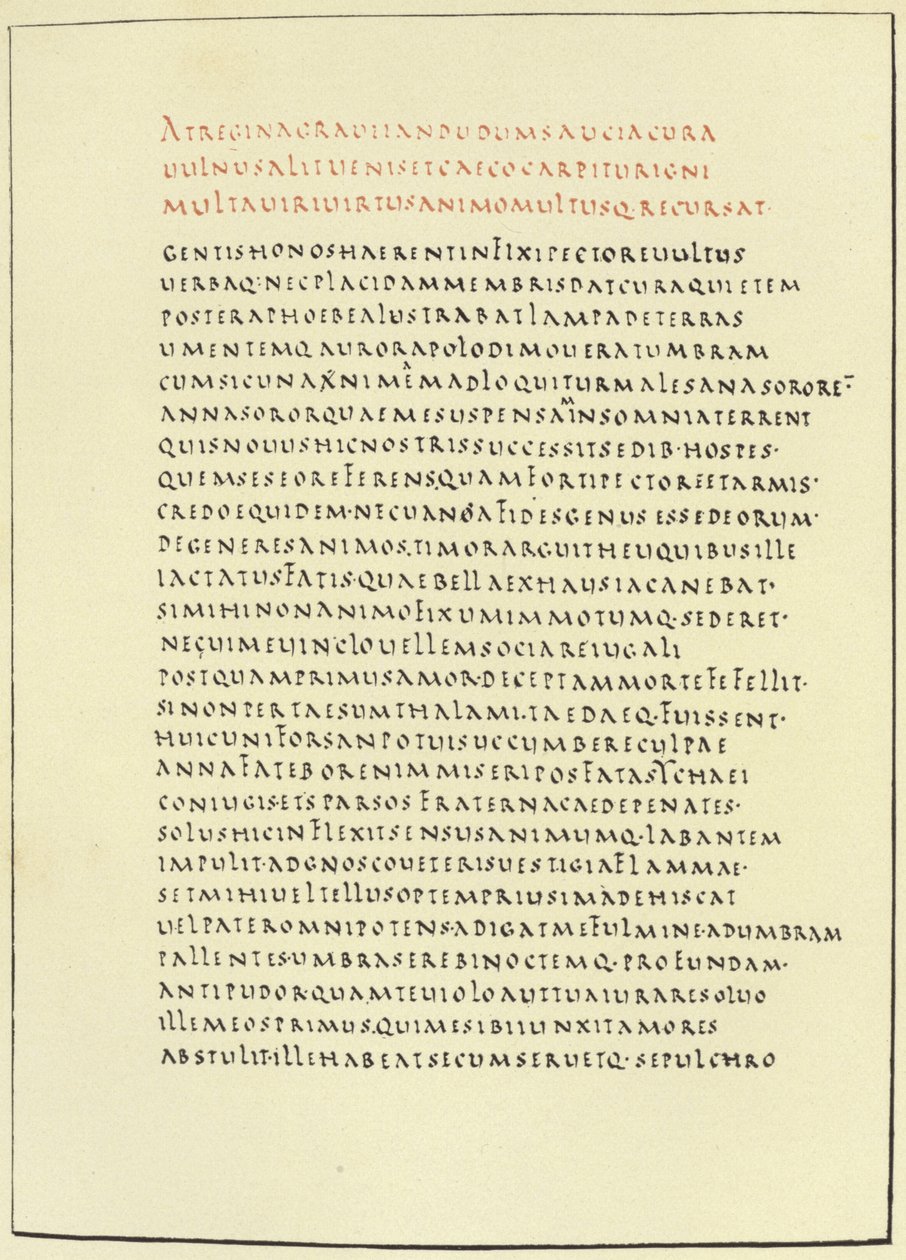 ATREGINAGRAVIIANDUDUMSAUCIACURA
UULNUSALITUENISETCAECOCARPITURIGNI
MULTAUIRIUIRTUSANIMOMULTUSQ·RECURSAT·
GENTISHONOSHAERENTINFIXIPECTOREUULTUS
UERBAQ·NECPLACIDAMMEMBRISDATCURAQUIETEM
POSTERAPHOEBEALUSTRABATLAMPADETERRAS
UMENTEMQ AURORAPOLODIMOUERATUMBRAM
CUMSICUNAXNIMEMADLOQUITURMALESANASORORE·
ANNASORORQUAEMESUSPENSAMINSOMNIATERRENT
QUISNOUUSHICNOSTRISSUCCESSITSEDIB·HOSPES·
QUEMSESEOREFERENS.QUAMFORTIPECTOREETARMIS·
CREDOEQUIDEM·NECUANAFIDESGENUS ESSEDEORUM·
DEGENERESANIMOS.TIMORARGUITHEUQUIBUSILLE
IACTATUSFATIS·QUAEBELLAEXHAUSIACANEBAT·
SIMIHINONANIMOFIXUMIMMOTUMQ·SEDERET·
NEQUIMEUINCLOUELLEMSOCIAREIUGALI
POSTQUAMPRIMUSAMOR·DECEPTAMMORTEFEFELLIT·
SINONPERTAESUMTHALAMI.TAEDAEQ·FUISSENT·
HUICUNIFORSANPOTUISUCCUMBERECULPAE
ANNAFATEBORENIMMISERIPOSFATASYCHAEI
CONIUGIS·ETSPARSOS FRATERNACAEDEPENATES·
SOLUSHICINFLEXITSENSUSANIMUMQ·LABANTEM
IMPULIT·ADGNOSCOUETERISUESTIGIAFLAMMAE·
SETMIHIUELTELLUSOPTEMPRIUSIMADEHISCAT
UELPATEROMNIPOTENS·ADIGATMEFULMINE·ADUMBRAM
PALLENTES·UMBRASEREBINOCTEMQ·PROFUNDAM·
ANTIPUDOR·QUAMTEUIOLOAUTTUAIURARESOLUO
ILLEMEOSPRIMUS.QUIMESIBIIUNXITAMORES
ABSTULIT·ILLEHABEATSECUMSERUETQ·SEPULCHRO